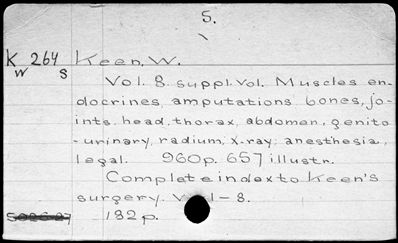 5.
K 264 Keen, W.
W S
Vol. 8. suppl. Vol. Muscles en-
docrines, amputations bones, jo-
ints, head, thorax, abdomen, genito
-urinary, radium, x-ray; anesthesia,
legal. 960p. 657 illustr.
Complete index to Keen's
surgery. V. 1-8.
5026-27 182p.